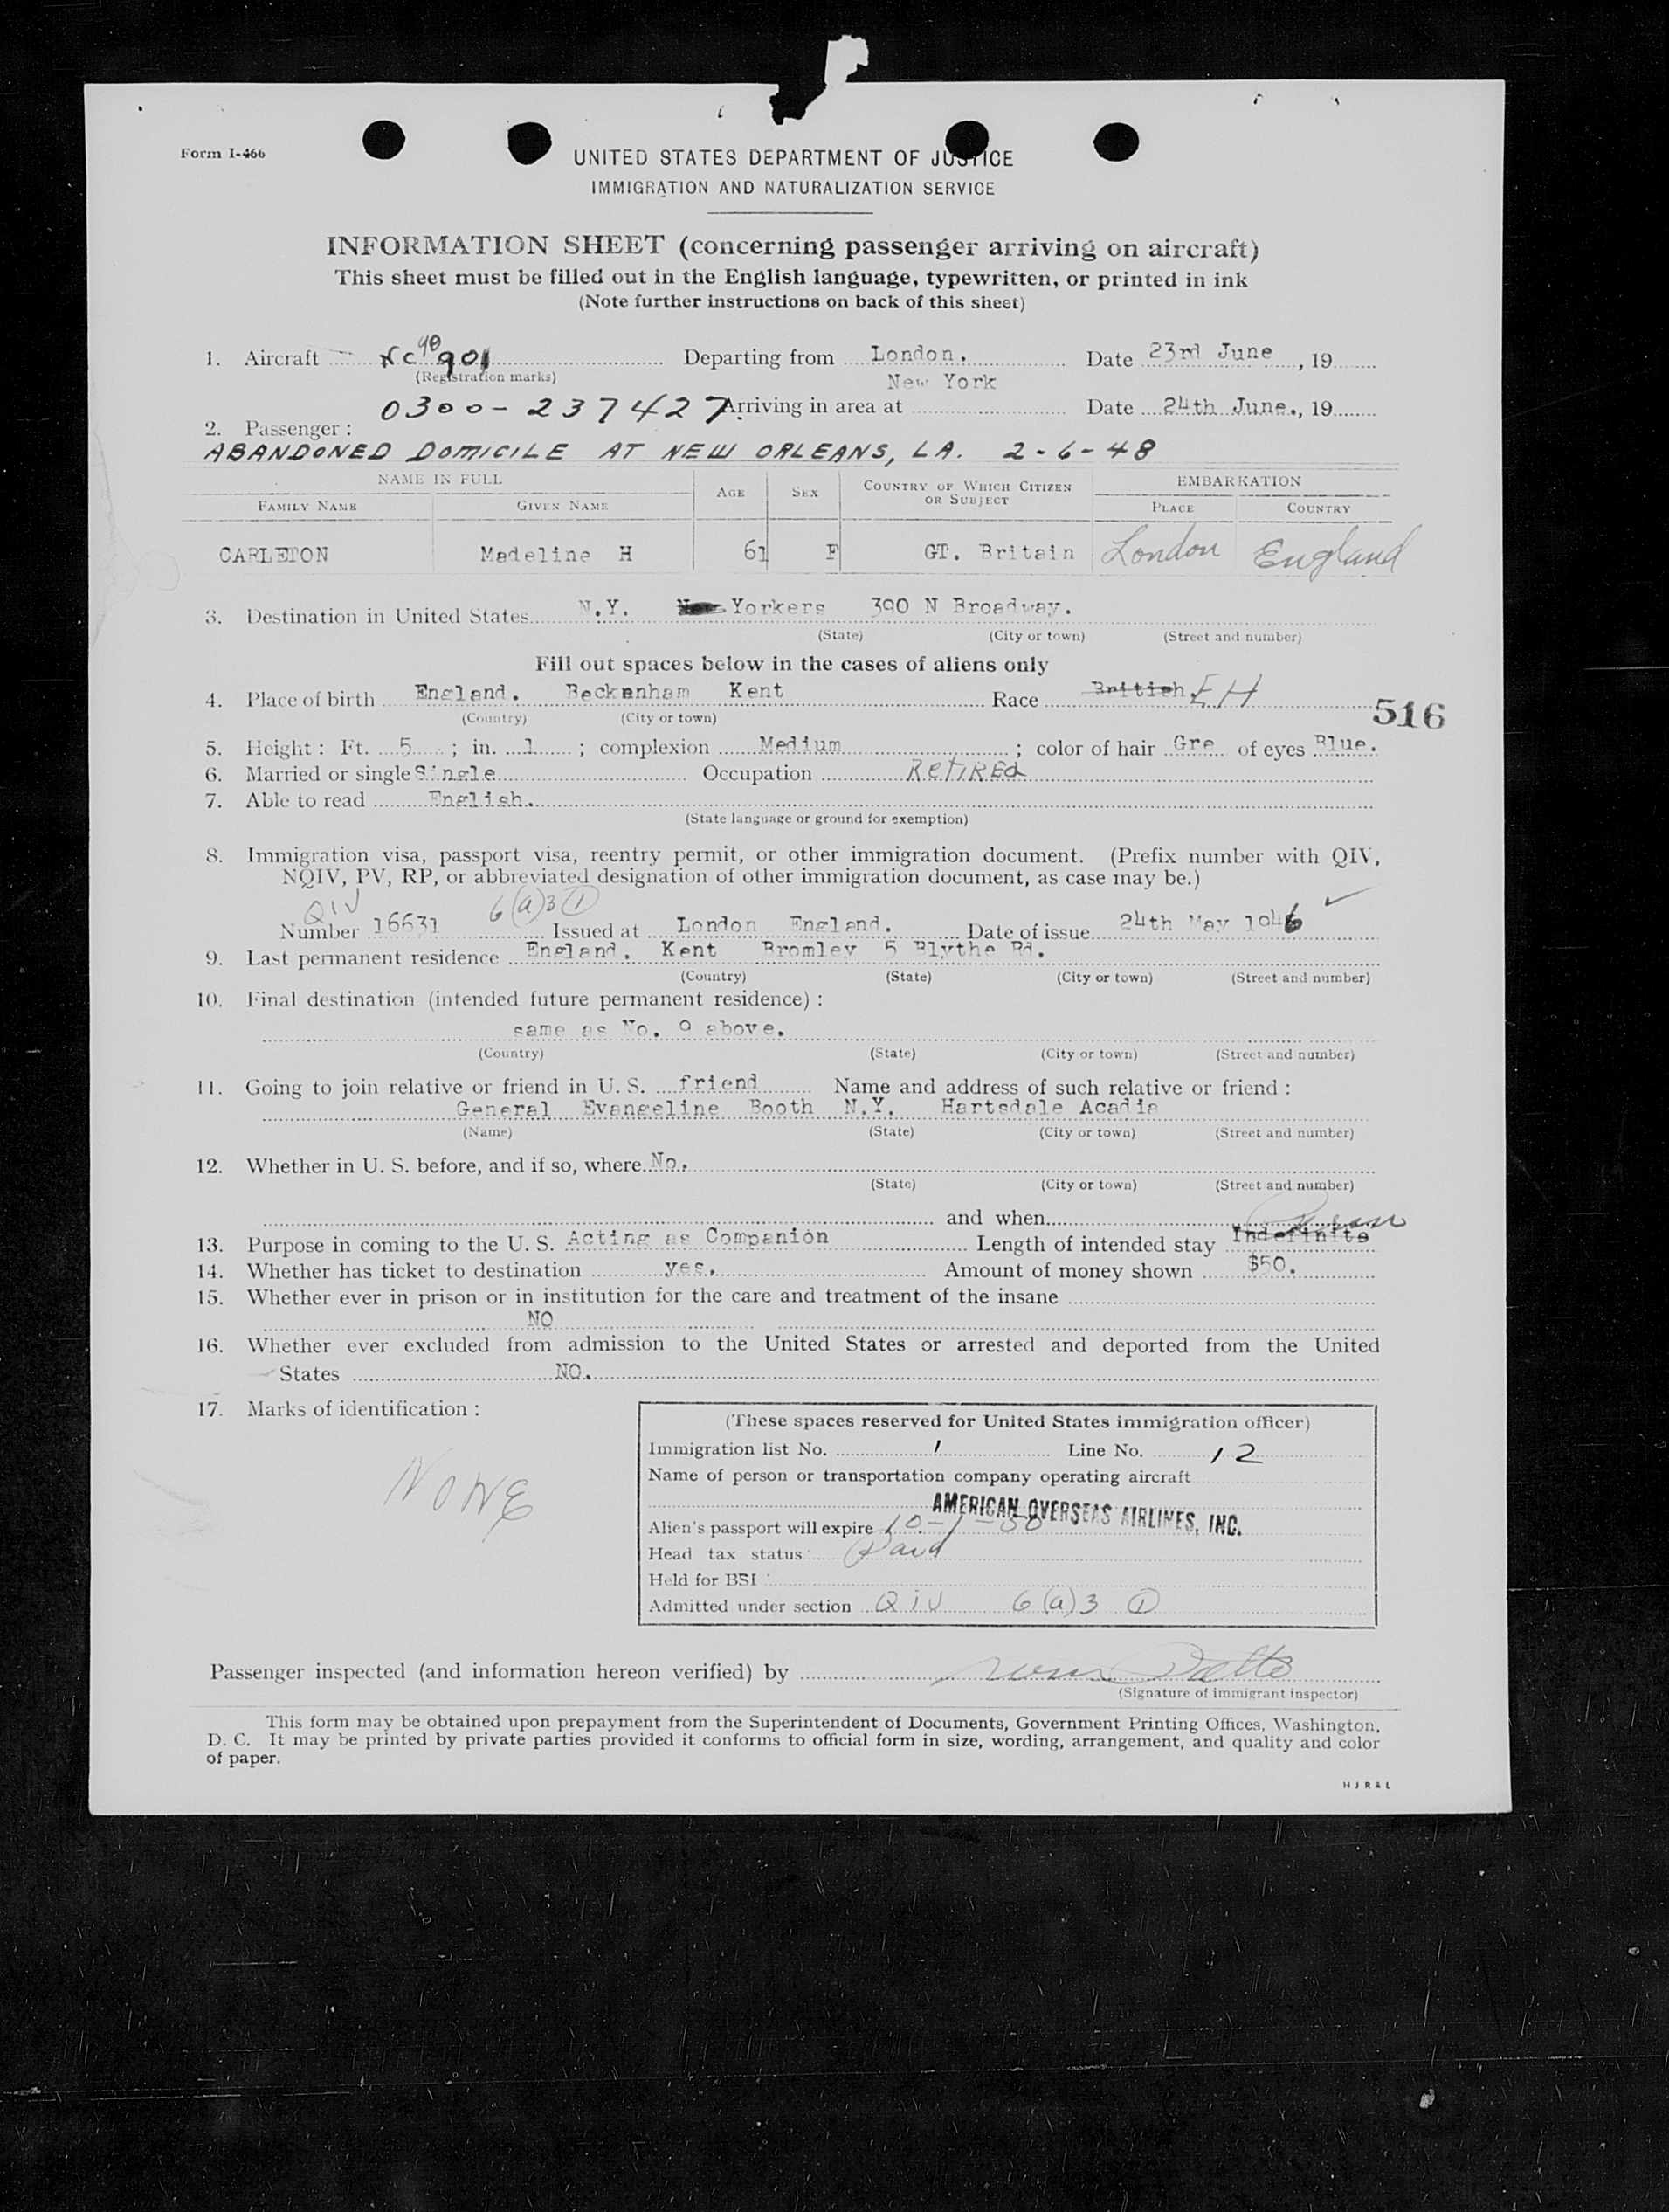 Form I-466
UNITED STATES DEPARTMENT OF JUSTICE
IMMIGRATION AND NATURALIZATION SERVICE
INFORMATION SHEET (concerning passenger arriving on aircraft)
This sheet must be filled out in the English language, typewritten, or printed in ink
(Note further instructions on back of this sheet)
1. Aircraft NC 90901 Departing from London. Date 23rd June, 19
(Registration marks) New York
0300-237427 Arriving in area at Date 24th June., 19
2. Passenger:
ABANDONED DOMICILE AT NEW ORLEANS, LA. 2-6-48
NAME IN FULL AGE SEX COUNTRY OF WHICH CITIZEN OR SUBJECT EMBARKATION
FAMILY NAME GIVEN NAME PLACE COUNTRY
CARLETON Madeline H 61 F GT. Britain London England
3. Destination in United States N.Y. Yorkers 390 N Broadway.
(State) (City or town) (Street and number)
Fill out spaces below in the cases of aliens only
4. Place of birth England. Beckenham Kent Race British. EH
(Country) (City or town)
516
5. Height: Ft. 5; in. 1; complexion Medium; color of hair Gre of eyes Blue.
6. Married or single Single Occupation RETIREd
7. Able to read English.
(State language or ground for exemption)
8. Immigration visa, passport visa, reentry permit, or other immigration document. (Prefix number with QIV,
NQIV, PV, RP, or abbreviated designation of other immigration document, as case may be.)
QIV 6(a)3 (1)
Number 16631 Issued at London England. Date of issue 24th May 1946
9. Last permanent residence England. Kent Bromley 5 Blythe Rd.
(Country) (State) (City or town) (Street and number)
10. Final destination (intended future permanent residence):
same as No. 9 above.
(Country) (State) (City or town) (Street and number)
11. Going to join relative or friend in U. S. friend Name and address of such relative or friend:
General Evangeline Booth N.Y. Hartsdale Acadia
(Name) (State) (City or town) (Street and number)
12. Whether in U. S. before, and if so, where No.
(State) (City or town) (Street and number)
and when
13. Purpose in coming to the U. S. Acting as Companion Length of intended stay Indefinite
14. Whether has ticket to destination yes. Amount of money shown $50.
15. Whether ever in prison or in institution for the care and treatment of the insane
NO
16. Whether ever excluded from admission to the United States or arrested and deported from the United
States NO.
17. Marks of identification:
NONE
(These spaces reserved for United States immigration officer)
Immigration list No. 1 Line No. 12
Name of person or transportation company operating aircraft
AMERICAN OVERSEAS AIRLINES, INC.
Alien's passport will expire 10-1-50
Head tax status Paid
Held for BSI
Admitted under section QIV 6(a)3 (1)
Passenger inspected (and information hereon verified) by
(Signature of immigrant inspector)
This form may be obtained upon prepayment from the Superintendent of Documents, Government Printing Offices, Washington,
D. C. It may be printed by private parties provided it conforms to official form in size, wording, arrangement, and quality and color
of paper.
H J R & L